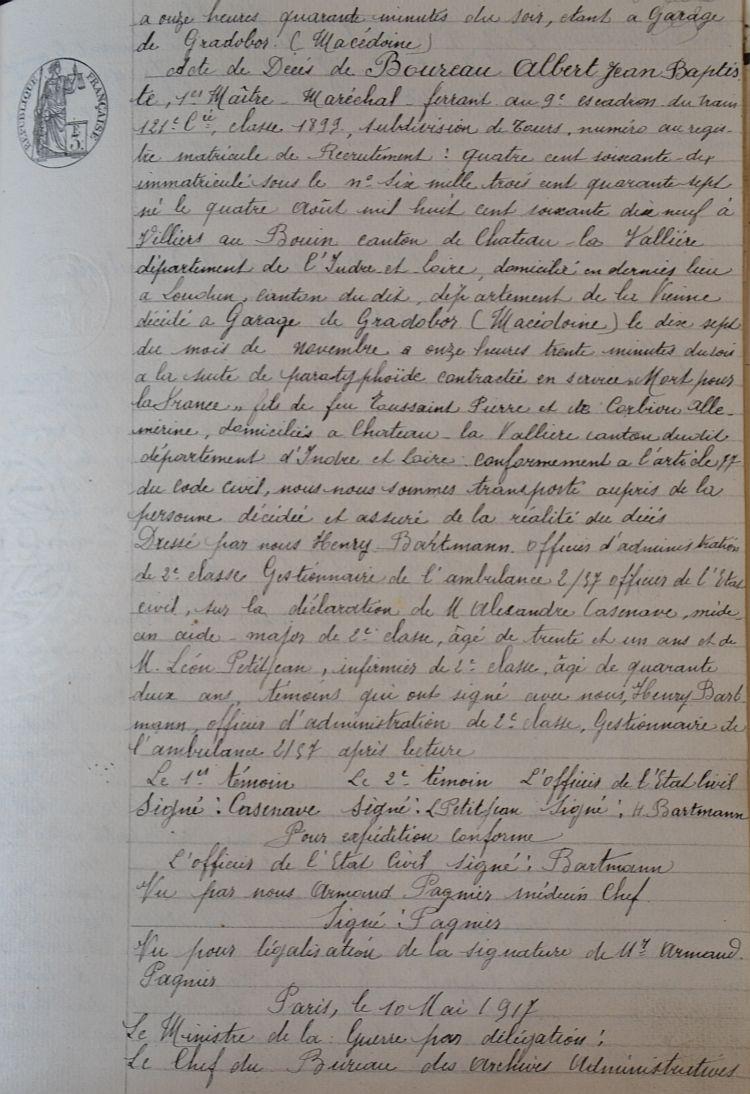 a onze heures quarante minutes du soir, etant a Garage
de Gradobor (Macédoine)
Acte de Décés de Boureau Albert Jean Baptis
te, 1er Maître Maréchal ferrant au 9e escadron du train
121e Cie, classe 1899, subdivision de Tours, numéro au regis-
tre matricule de Recrutement : quatre cent soixante-dix
immatriculé sous le no six mille trois cent quarante-sept
né le quatre Août mil huit cent soixante dix neuf à
Villiers au Bouin canton de Chateau-la Vallière
département de l'Indre et Loire, domicilié en dernier lieu
a Loudun, canton du dit, département de la Vienne
décédé a Garage de Gradobor (Macédoine) le dix sept
du mois de novembre a onze heures trente minutes du soir
a la suite de paratyphoïde contractée en service "Mort pour
la France" fils de feu Toussaint Pierre et de Corbiou Alle-
mérine, domiciliés a Chateau-la Valliere canton dudit
département d'Indre et Loire. conformement a l'article 77
du code civil, nous nous sommes transporté aupris de la
personne décédée et assuré de la réalité du décés
Dressé par nous Henry Bartmann officier d'administration
de 2e classe Gestionnaire de l'ambulance 2/57 officier de l'Etat
civil, sur la déclaration de M Alexandre Casenave, méde-
cin aide-major de 2e classe, âgé de trente et un ans et de
M. Léon PetitJean, infirmier de 2e classe, âgé de quarante
deux ans, témoins qui ont signé avec nous, Henry Bart
mann, officier d'administration de 2e classe, Gestionnaire de
l'ambulance 2/57 après lecture
Le 1er témoin Le 2e témoin L'officier de l'Etat Civil
Signé : Casenave Signé : L PetitJean Signé : H. Bartmann
Pour expédition conforme
L'officier de l'Etat Civil Signé : Bartmann
Vu par nous Armand Pagnier médecin Chef
Signé : Pagnier
Vu pour légalisation de la signature de Mr Armand
Pagnier
Paris, le 10 Mai 1917
Le Ministre de la Guerre par délégation :
Le Chef du Bureau des Archives Administratives
RÉPUBLIQUE FRANÇAISE